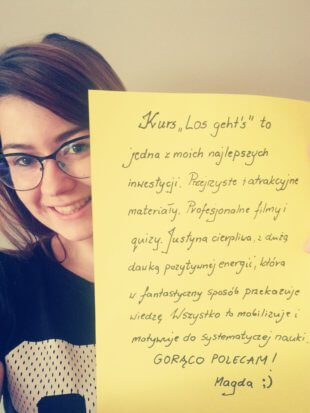 Kurs „Los geht's" to
jedna z moich najlepszych
inwestycji. Przejrzyste i atrakcyjne
materiały. Profesjonalne filmy i
quizy. Justyna cierpliwa, z dużą
dawką pozytywnej energii, która
w fantastyczny sposób przekazuje
wiedzę. Wszystko to mobilizuje i
motywuje do systematycznej nauki.
GORĄCO POLECAM!
Magda :)